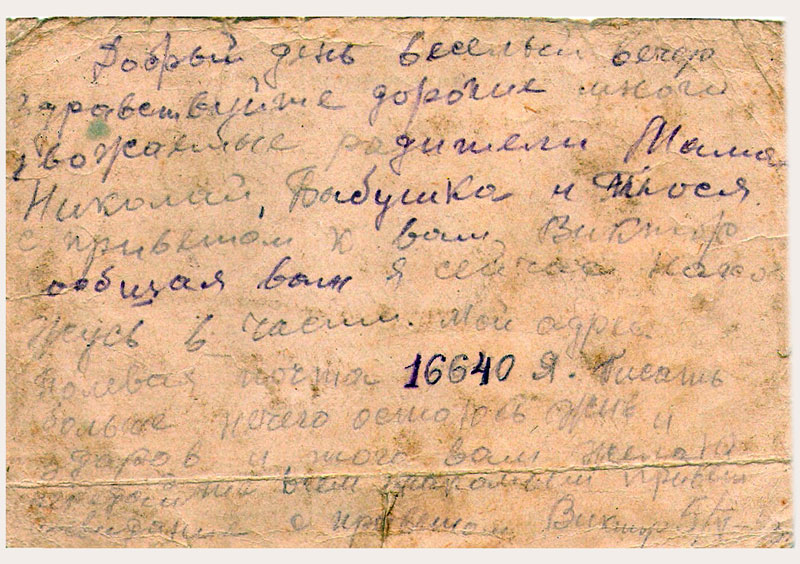 Добрый день веселый вечер
Здравствуйте дорогие много
уважаемые родители Мама
Николай, Бабушка и Тося
с приветом к вам Виктор
сообщая вам я сейчас нахо
жусь в части. Мой адрес
Полевая почта 16640 Я. Писать
больше нечего остаюсь жив и
здоров и того вам желаю
передайте всем знакомым привет
с приветом Виктор